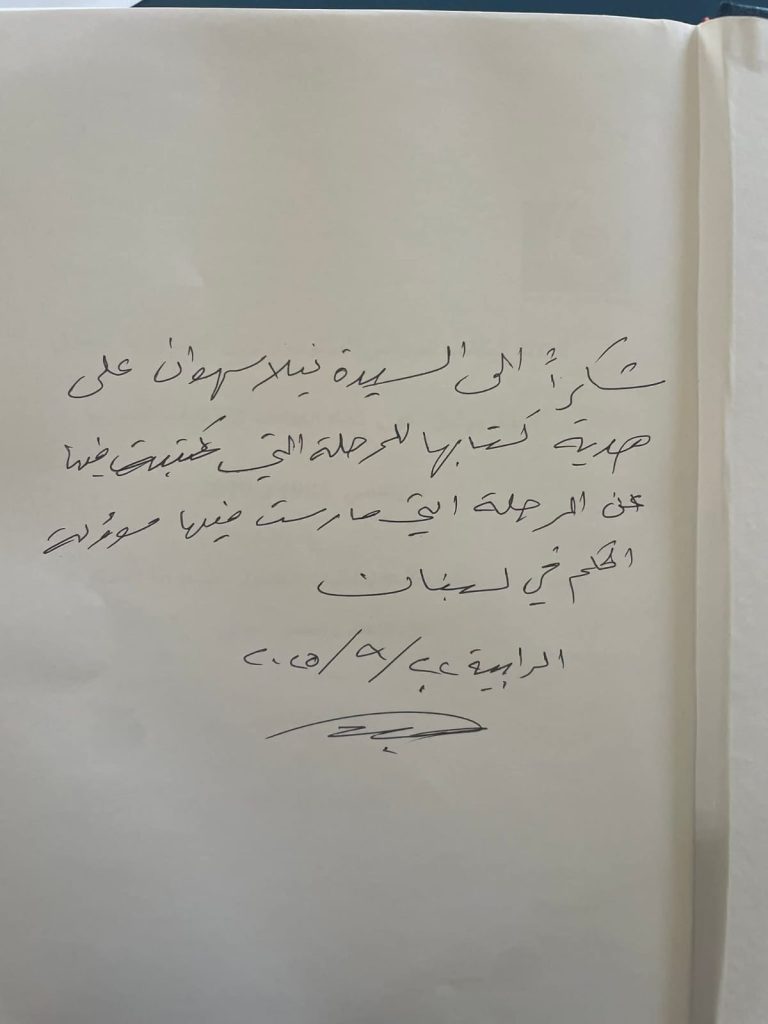 شكراً الى السيدة نيلا سهوان على
هدية كتابها للمرحلة التي كتبت فيها
عن المرحلة التي مارست فيها مسؤولية
الحكم في لبنان
الرابية ٢٢/٨/٢٠٢٥